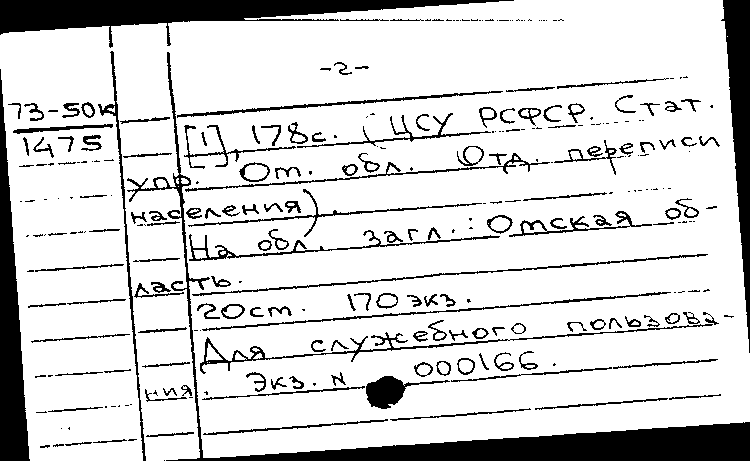 -2-
73-50к
1475
[1], 178с. (ЦСУ РСФСР. Стат.
упр. Ом. обл. Отд. переписи
населения).
На обл. загл.: Омская об-
ласть.
20см. 170 экз.
Для служебного пользова-
ния. Экз. N 000166.